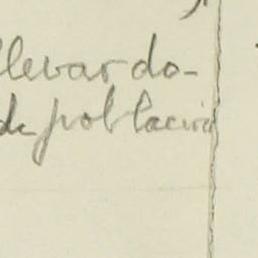 llevar do-
de població